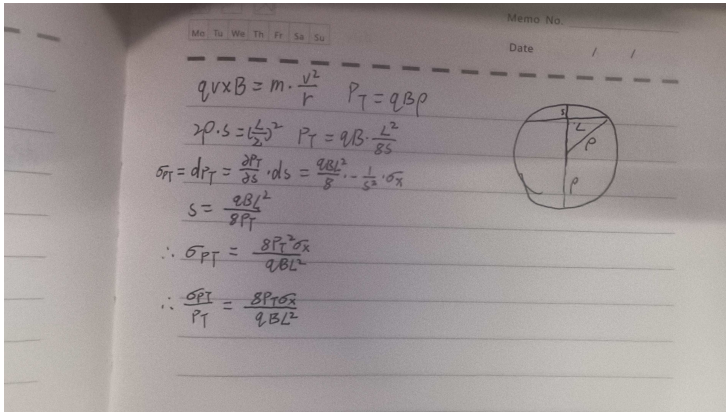 Memo No.
Mo Tu We Th Fr Sa Su
Date / /
qv×B = m·v²/r P_T = qBρ
2ρ·s = (L/2)² P_T = qB·L²/8s
σ_PT = dP_T = ∂P_T/∂s·ds = qBL²/8·-1/s²·σx
s = qBL²/8P_T
∴ σ_PT = 8P_T²σx/qBL²
∴ σ_PT/P_T = 8P_Tσx/qBL²
s
L
ρ
ρ